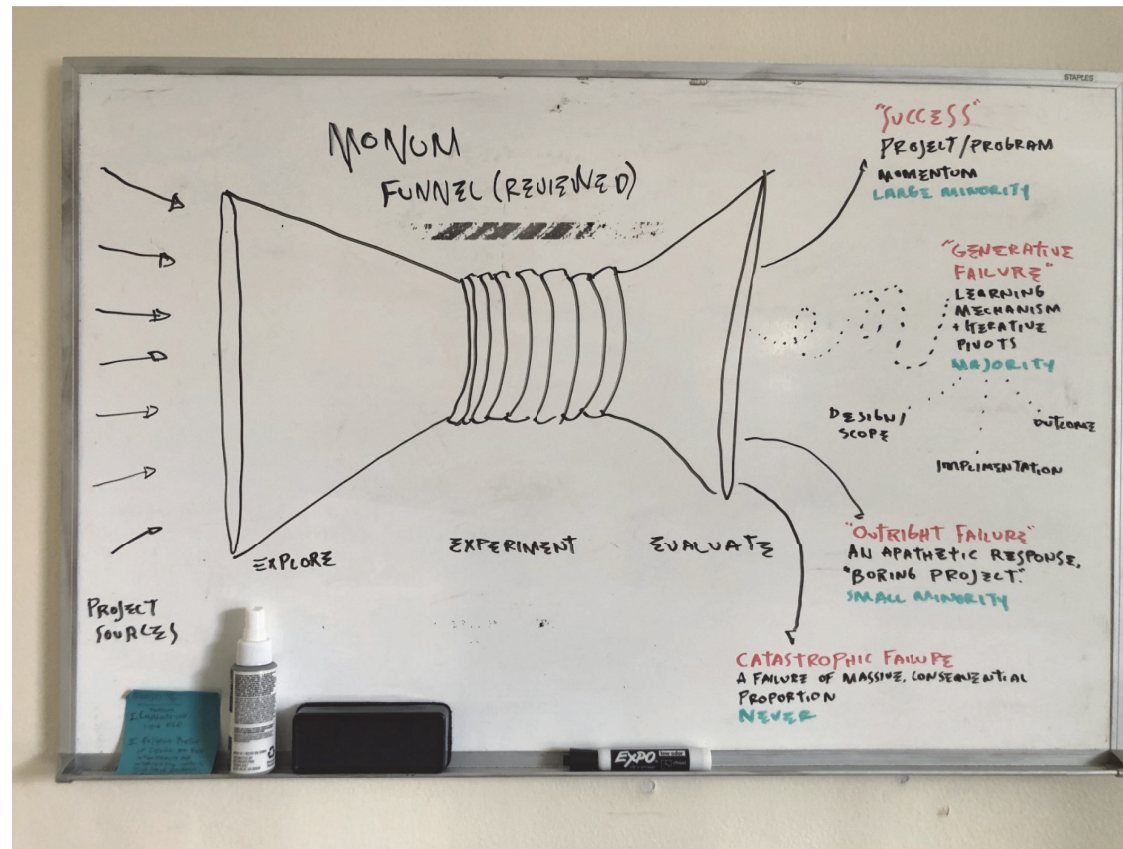 STAPLES
MONUM
FUNNEL (REVIEWED)
"SUCCESS"
PROJECT/PROGRAM
MOMENTUM
LARGE MINORITY
"GENERATIVE
FAILURE"
LEARNING
MECHANISM
+ ITERATIVE
PIVOTS
MAJORITY
DESIGN/
SCOPE
OUTCOME
IMPLIMENTATION
EXPLORE
EXPERIMENT
EVALUATE
"OUTRIGHT FAILURE"
AN APATHETIC RESPONSE,
"BORING PROJECT."
SMALL MINORITY
PROJECT
SOURCES
CATASTROPHIC FAILURE
A FAILURE OF MASSIVE, CONSEQUENTIAL
PROPORTION
NEVER
EXPO